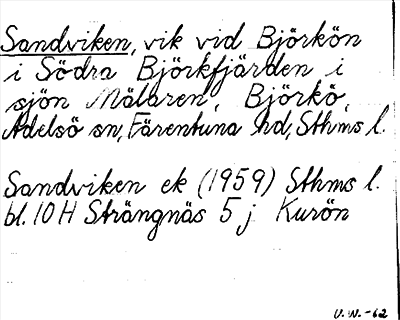 Sandviken, vik vid Björkön
i Södra Björkfjärden i
sjön Mälaren, Björkö,
Adelsö sn, Färentuna hd, Sthms l.
Sandviken ek (1959) Sthms l.
bl. 10 H Strängnäs 5 j Kurön
U. N. -62